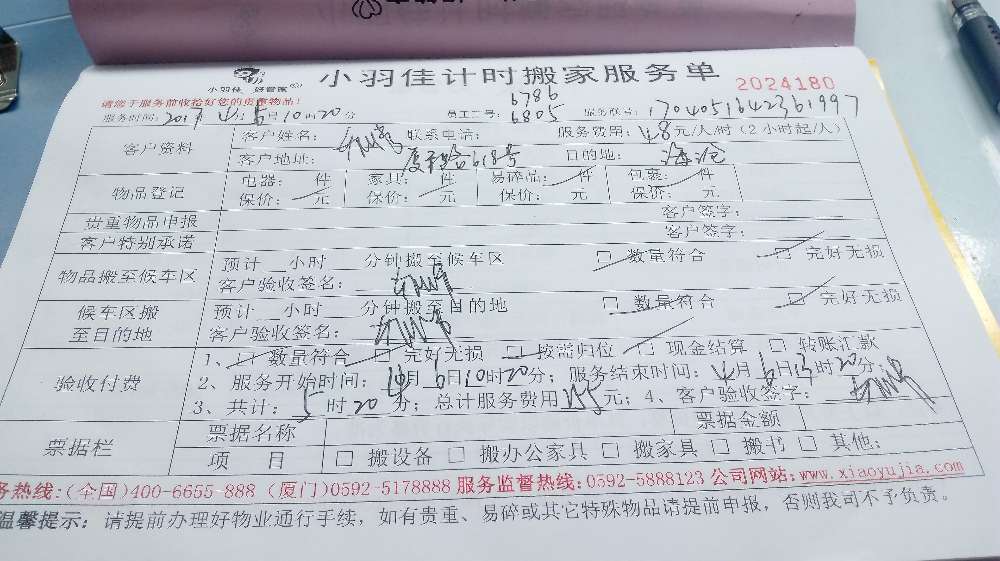 小羽佳计时搬家服务单
小羽佳 好管家
2024180
请您于服务前收拾好您的贵重物品!
6786
服务时间: 2017年4月6日10时20分 员工工号: 6805 服务账号: 1704051642361997
客户资料
客户姓名: 联系电话: 服务费用: 48元/人/时 (2小时起/人)
客户地址: 厦禾路618号 目的地: 海沧
物品登记
电器: 件 家具: 件 易碎品: 件 包装: 件
保价: 元 保价: 元 保价: 元 保价: 元
贵重物品申报 客户签字:
客户特别承诺 客户签字:
物品搬至候车区
预计 小时 分钟搬至候车区 □ 数量符合 □ 完好无损
客户验收签名:
候车区搬至目的地
预计 小时 分钟搬至目的地 □ 数量符合 □ 完好无损
客户验收签名:
验收付费
1、□ 数量符合 □ 完好无损 □ 按需归位 □ 现金结算 □ 转账汇款
2、服务开始时间: 4月6日10时20分; 服务结束时间: 4月6日13时20分;
3、共计: 5时20分; 总计服务费用 元; 4、客户验收签字:
票据栏
票据名称 票据金额
项 目 □ 搬设备 □ 搬办公家具 □ 搬家具 □ 搬书 □ 其他:
务热线: (全国)400-6655-888 (厦门)0592-5178888 服务监督热线:0592-5888123 公司网站:www.xiaoyujia.com
温馨提示: 请提前办理好物业通行手续, 如有贵重、易碎或其它特殊物品请提前申报, 否则我司不予负责。